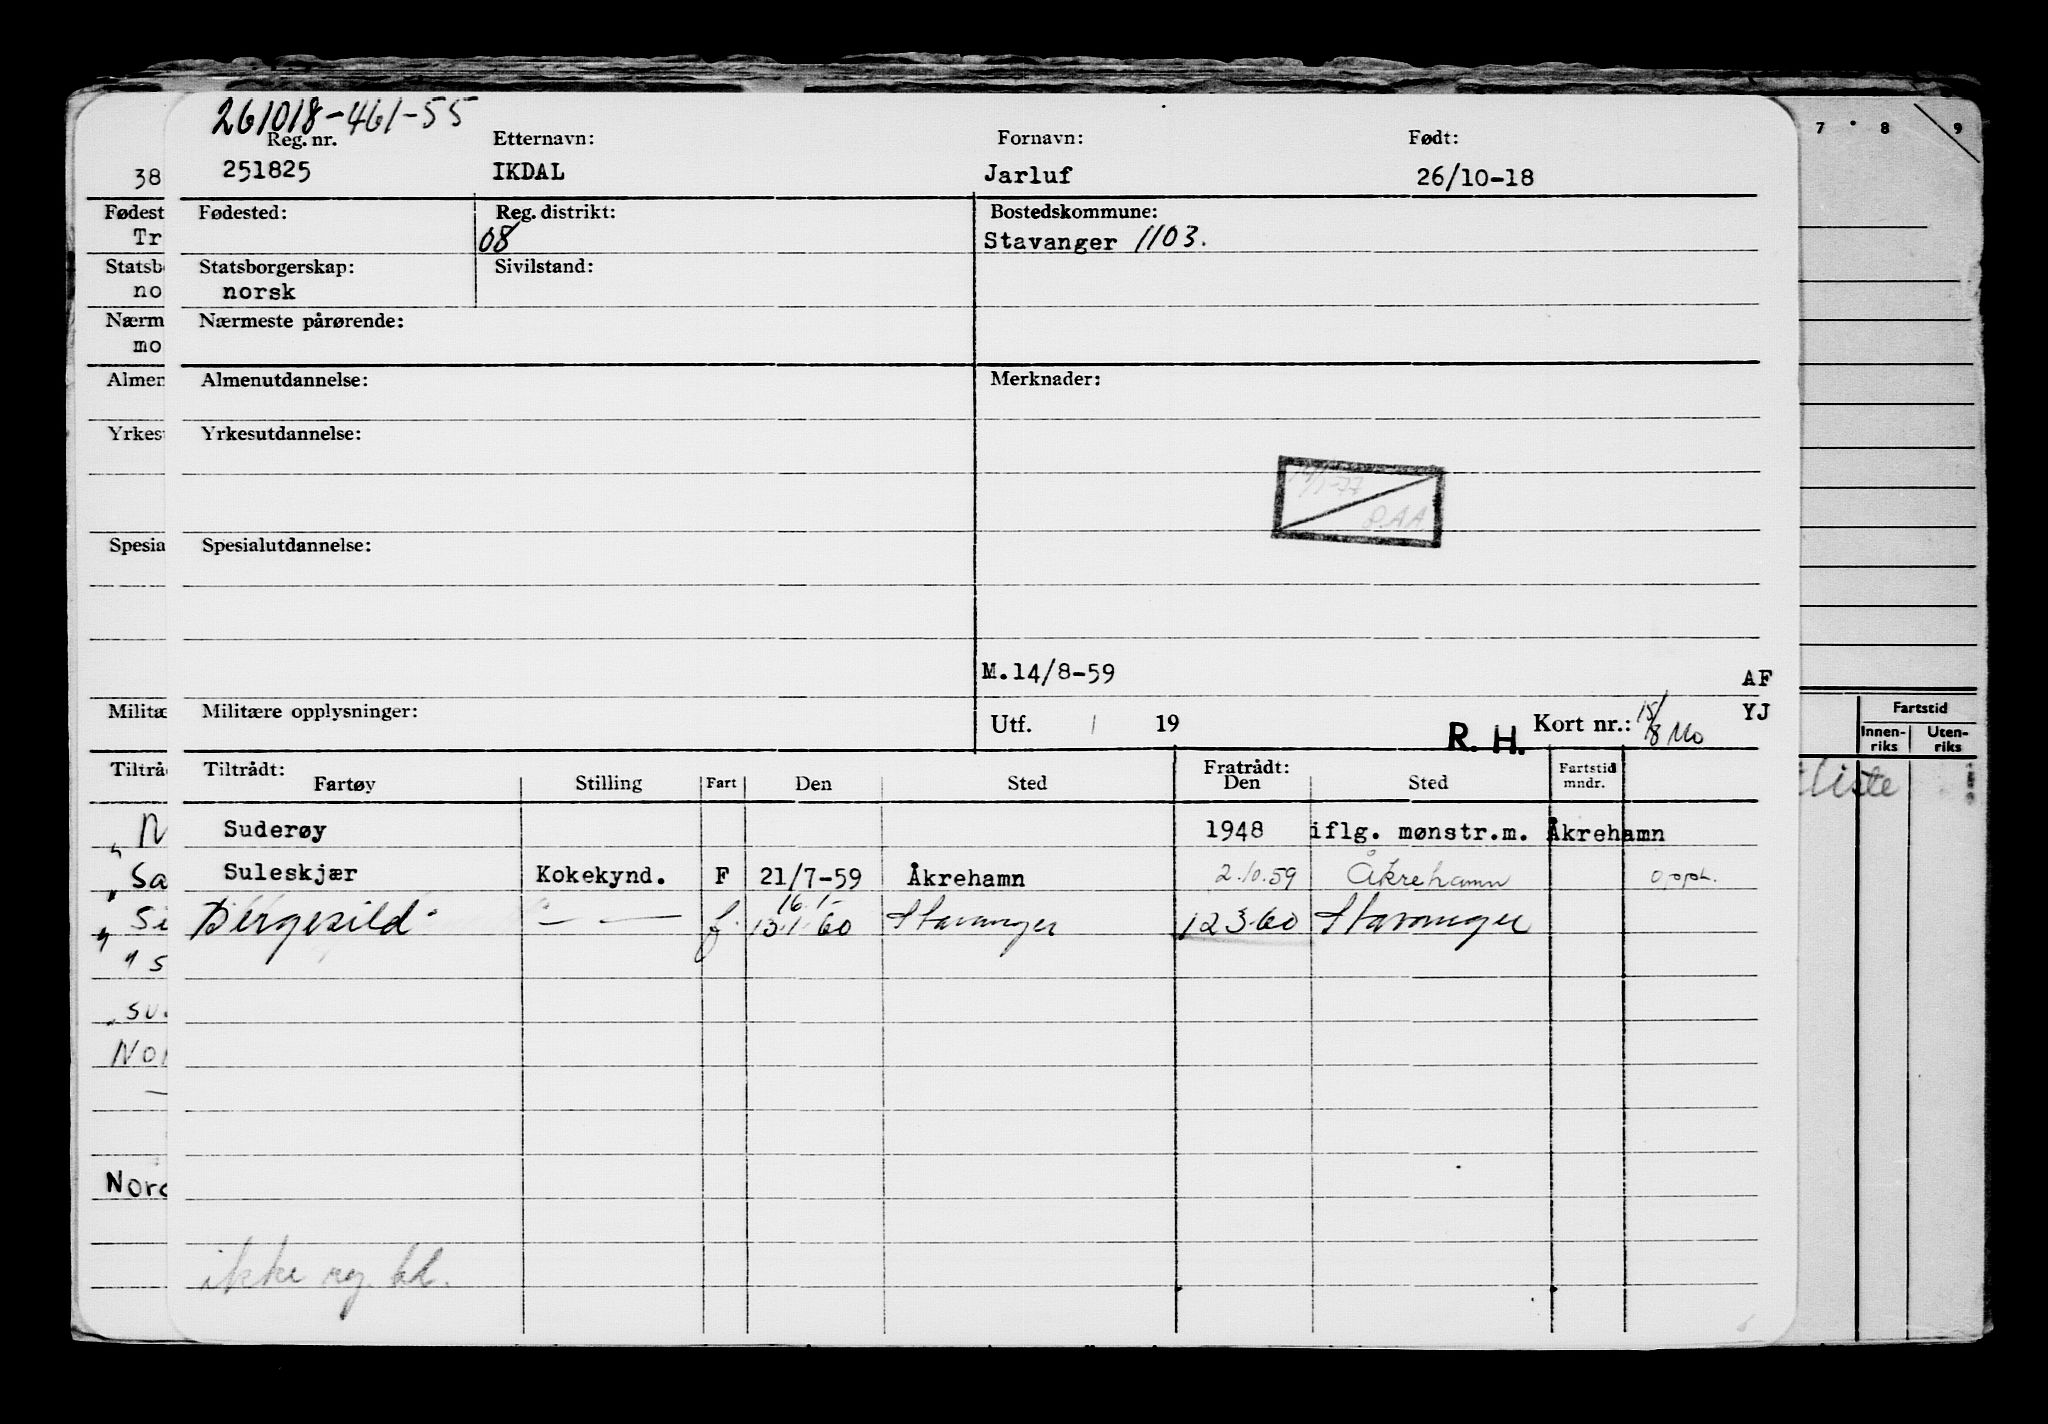 261018-461-55
Reg. nr. Etternavn: Fornavn: Født:
251825 IKDAL Jarluf 26/10-18
7 8 9
38
Fødest Fødested: Reg. distrikt: Bostedskommune:
Tr 08 Stavanger 1103.
Statsb Statsborgerskap: Sivilstand:
no norsk
Nærm Nærmeste pårørende:
mo
Almen Almenutdannelse: Merknader:
Yrkes Yrkesutdannelse:
P.AA
Spesia Spesialutdannelse:
M.14/8-59 AF
Militæ Militære opplysninger: Utf. 19 R. H. Kort nr.: 15/8 Mo YJ
Fartstid
Innen-riks Uten-riks
Tiltrå Tiltrådt: Fratrådt: Fartstid mndr.
Fartøy Stilling Fart Den Sted Den Sted
liste
N Suderøy 1948 iflg. mønstr.m. Åkrehamn
Sa Suleskjær Kokekynd. F 21/7-59 Åkrehamn 2.10.59 Åkrehamn opph.
16.1-
Si Bergesild — — f. 13.1.60 Stavanger 12 3 60 Stavanger
" s
su
Nor
—
Nord
ikke reg. bl.